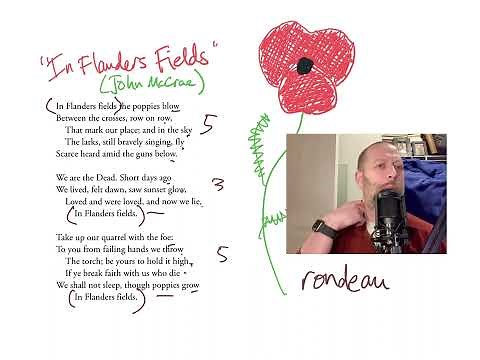 "In Flanders Fields"
(John McCrae)
(In Flanders fields) the poppies blow
Between the crosses, row on row,
That mark our place; and in the sky
The larks, still bravely singing, fly
Scarce heard amid the guns below.
5
We are the Dead. Short days ago
We lived, felt dawn, saw sunset glow,
Loved and were loved, and now we lie,
(In Flanders fields.) —
3
Take up our quarrel with the foe:
To you from failing hands we throw
The torch; be yours to hold it high.
If ye break faith with us who die
We shall not sleep, though poppies grow
(In Flanders fields.) —
5
rondeau